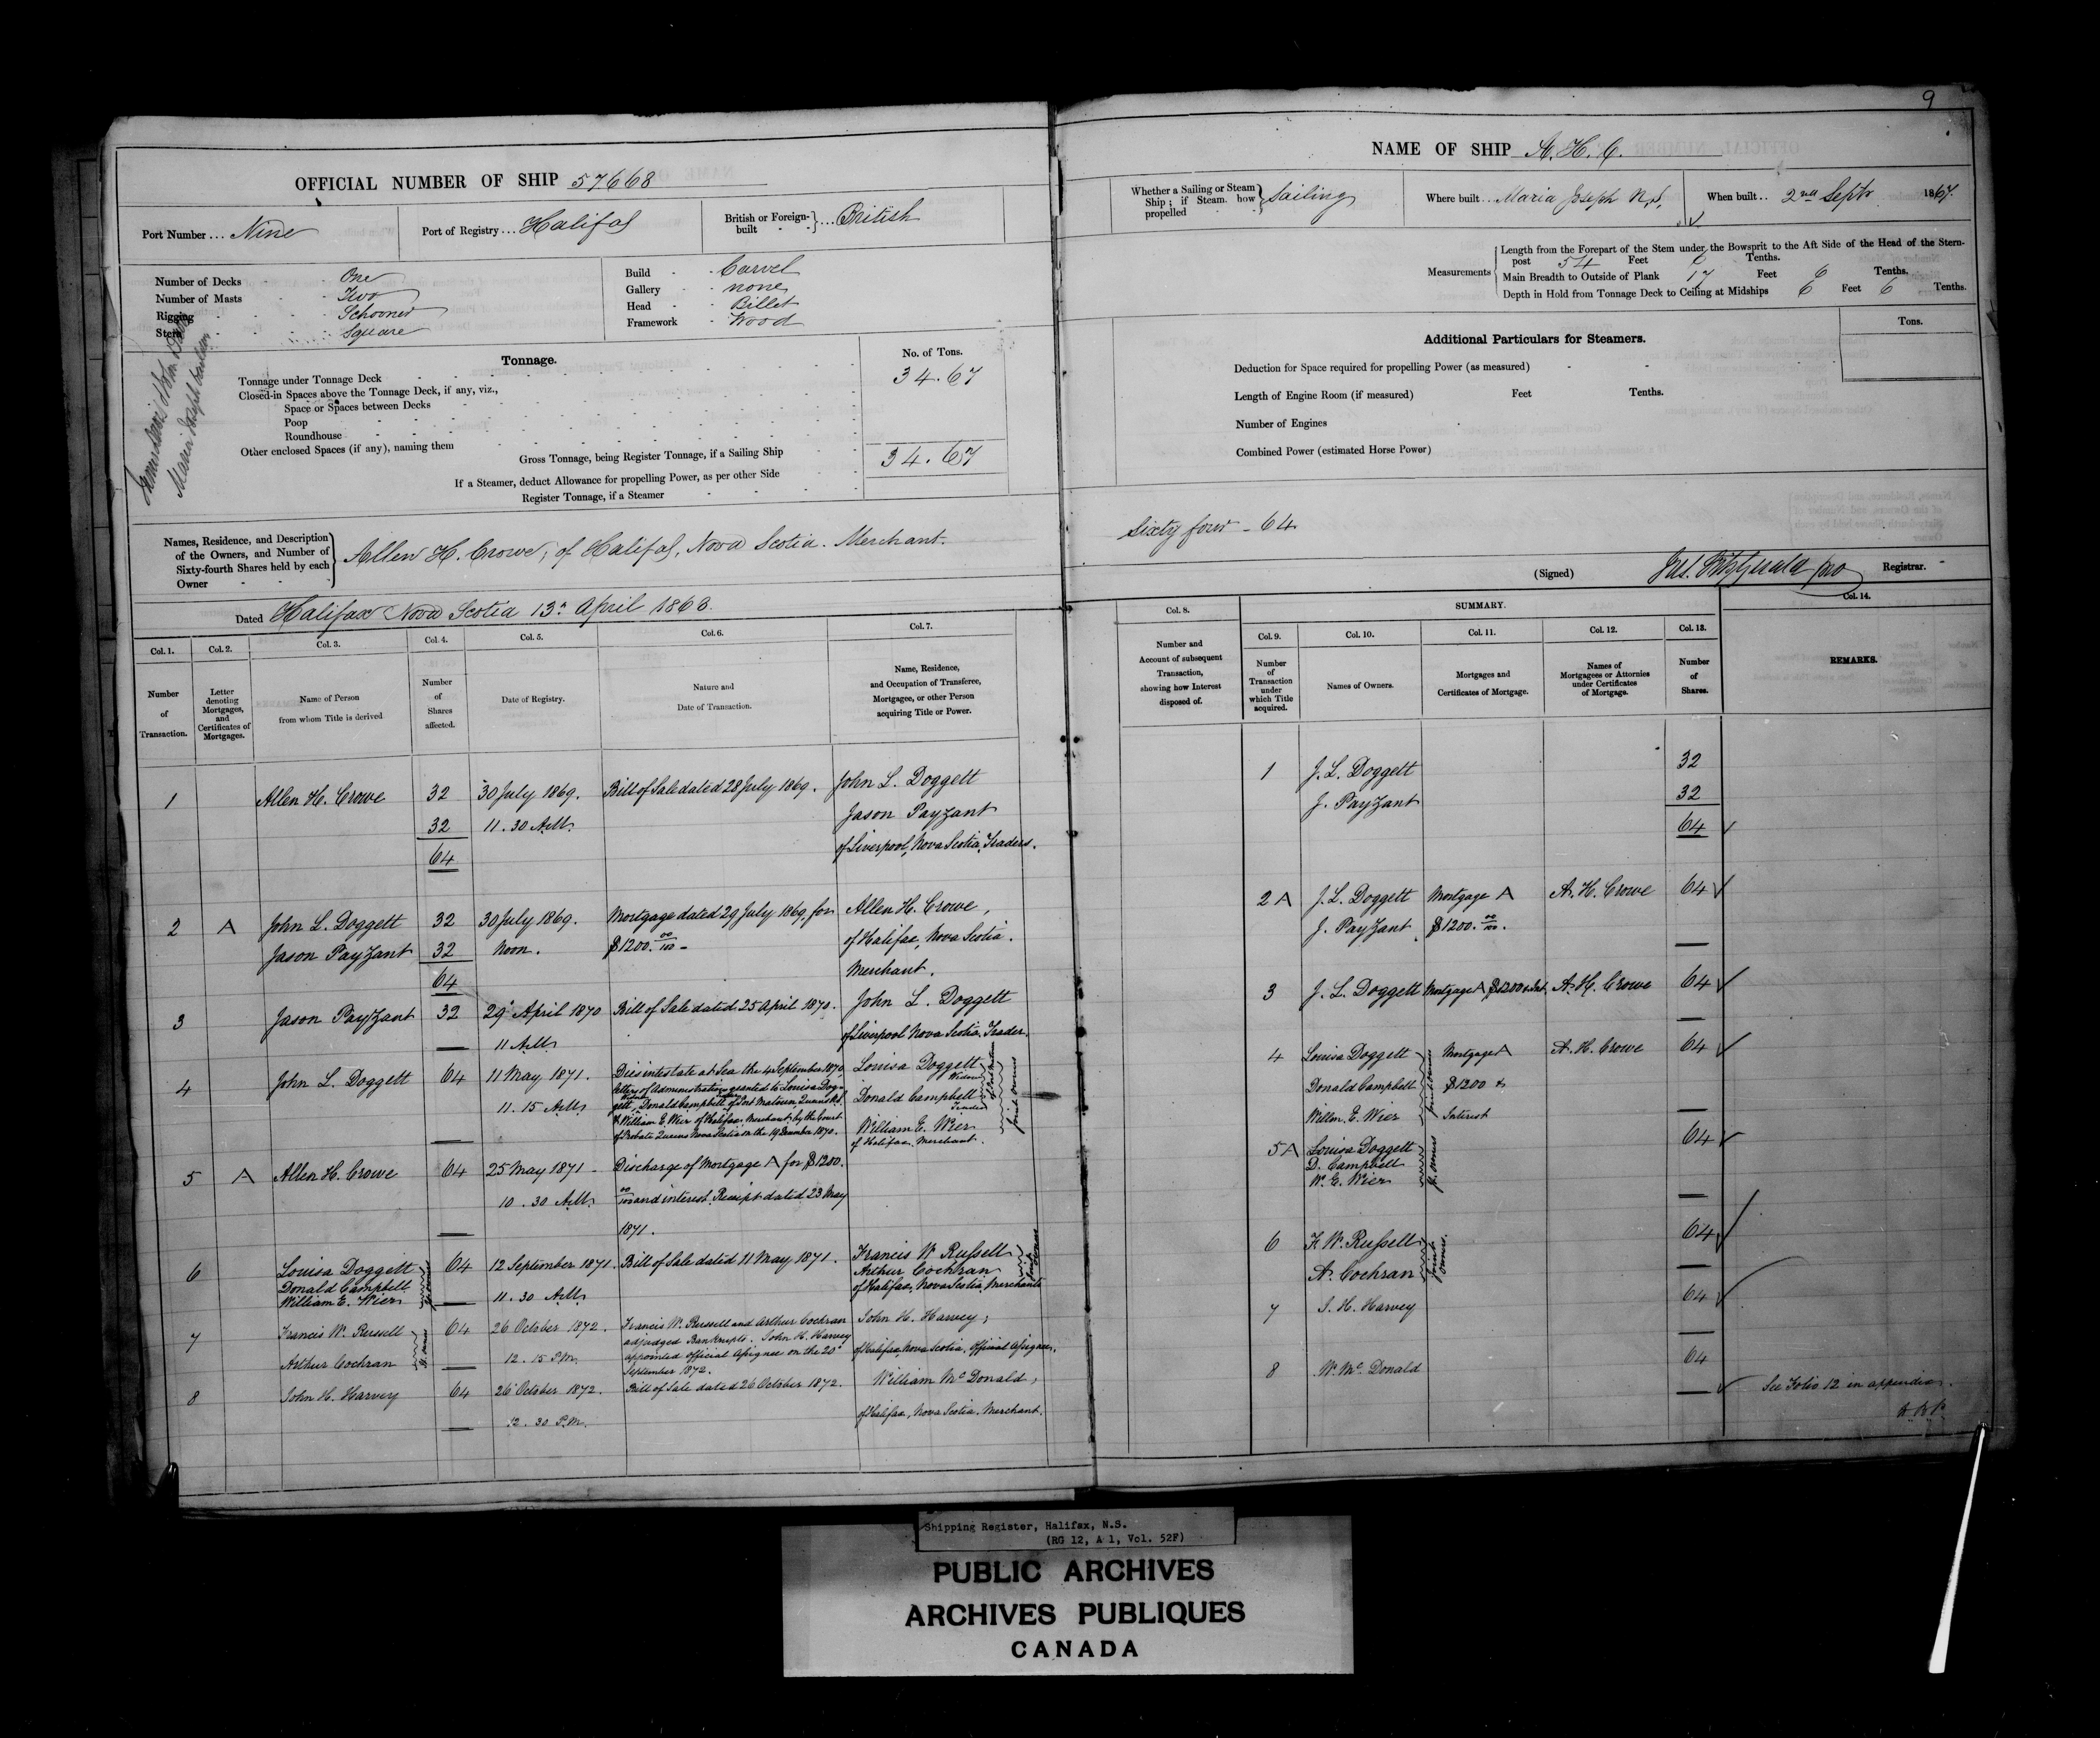 9
OFFICIAL NUMBER OF SHIP 57668
Port Number ... Nine
Port of Registry ... Halifax
British or Foreign-built ... British
Number of Decks One
Number of Masts Two
Rigging Schooner
Stern Square
Build Carvel
Gallery none
Head Billet
Framework Wood
Tonnage.
No. of Tons.
Tonnage under Tonnage Deck 34.67
Closed-in Spaces above the Tonnage Deck, if any, viz.,
Space or Spaces between Decks
Poop
Roundhouse
Other enclosed Spaces (if any), naming them
Gross Tonnage, being Register Tonnage, if a Sailing Ship 34.67
If a Steamer, deduct Allowance for propelling Power, as per other Side
Register Tonnage, if a Steamer
Names, Residence, and Description
of the Owners, and Number of
Sixty-fourth Shares held by each
Owner
Allen H. Crowe, of Halifax, Nova Scotia. Merchant.
Dated Halifax Nova Scotia 13th April 1868.
Col. 1. Col. 2. Col. 3. Col. 4. Col. 5. Col. 6. Col. 7.
Number of Transaction.
Letter denoting Mortgages, and Certificates of Mortgages.
Name of Person from whom Title is derived
Number of Shares affected.
Date of Registry.
Nature and Date of Transaction.
Name, Residence, and Occupation of Transferee, Mortgagee, or other Person acquiring Title or Power.
1 Allen H. Crowe 32 30 July 1869. Bill of Sale dated 28 July 1869. John L. Doggett
32 11.30 A.M. Jason Payzant
64 of Liverpool, Nova Scotia, Traders.
2 A John L. Doggett 32 30 July 1869. Mortgage dated 29 July 1869, for Allen H. Crowe,
Jason Payzant 32 Noon. $1200.00/100 - of Halifax, Nova Scotia.
64 Merchant.
3 Jason Payzant 32 29 April 1870 Bill of Sale dated 25 April 1870. John L. Doggett
11 A.M. of Liverpool Nova Scotia, Trader.
4 John L. Doggett 64 11 May 1871. Dies intestate at Sea the 4 September 1870, Louisa Doggett
letters of Administration granted to Louisa Dog- Widow
11.15 A.M. gett, Donald Campbell of Port Matoun Queens Co. Donald Campbell
& William E. Wier of Halifax, Merchant, by the Court Trader
of Probate Queens Nova Scotia on the 19 December 1870. William E. Wier
of Halifax, Merchant.
joint owners
5 A Allen H. Crowe 64 25 May 1871 - Discharge of Mortgage A for $1200.
10.30 A.M. 00/100 and interest. Receipt dated 23 May
1871.
6 Louisa Doggett 64 12 September 1871. Bill of Sale dated 11 May 1871. Francis W Russell
Donald Campbell Arthur Cochran
William E. Wier 11.30 A.M. of Halifax, Nova Scotia, Merchants
Jt. owners
joint owners
7 Francis W. Russell 64 26 October 1872. Francis W. Russell and Arthur Cochran John H. Harvey,
adjudged Bankrupts. John H. Harvey
Arthur Cochran 12.15 P.M. appointed Official Assignee on the 20th of Halifax, Nova Scotia, Official Assignee.
September 1872.
Jt. owners
8 John H. Harvey 64 26 October 1872. Bill of Sale dated 26 October 1872. William McDonald,
12.30 P.M. of Halifax, Nova Scotia. Merchant.
NAME OF SHIP A. H. C.
Whether a Sailing or Steam Ship; if Steam, how propelled Sailing
Where built ... Maria Joseph N.S.
When built .. 2nd Septr 1867.
Measurements
Length from the Forepart of the Stem under the Bowsprit to the Aft Side of the Head of the Stern-
post 54 Feet 0 Tenths.
Main Breadth to Outside of Plank 17 Feet 6 Tenths.
Depth in Hold from Tonnage Deck to Ceiling at Midships 6 Feet 6 Tenths.
Additional Particulars for Steamers.
Tons.
Deduction for Space required for propelling Power (as measured)
Length of Engine Room (if measured) Feet Tenths.
Number of Engines
Combined Power (estimated Horse Power)
Sixty four - 64
(Signed) Registrar.
Col. 8.
SUMMARY.
Col. 9. Col. 10. Col. 11. Col. 12. Col. 13. Col. 14.
Number and Account of subsequent Transaction, showing how Interest disposed of.
Number of Transaction under which Title acquired.
Names of Owners.
Mortgages and Certificates of Mortgage.
Names of Mortgagees or Attornies under Certificates of Mortgage.
Number of Shares.
REMARKS.
1 J. L. Doggett 32
J. Payzant 32
64
2 A J. L. Doggett Mortgage A A. H. Crowe 64
J. Payzant $1200.00/100.
3 J. L. Doggett Mortgage A $1200 & Int. A. H. Crowe 64
4 Louisa Doggett Mortgage A A. H. Crowe 64
Donald Campbell $1200 &
Willm. E. Wier Interest
joint owners
5 A Louisa Doggett 64
D. Campbell
W. E. Wier
Jt. owners
6 F. W. Russell 64
A. Cochran
joint owners.
7 J. H. Harvey 64
8 W. McDonald 64
See Folio 12 in appendix.
Shipping Register, Halifax, N.S.
(RG 12, A 1, Vol. 52F)
PUBLIC ARCHIVES
ARCHIVES PUBLIQUES
CANADA